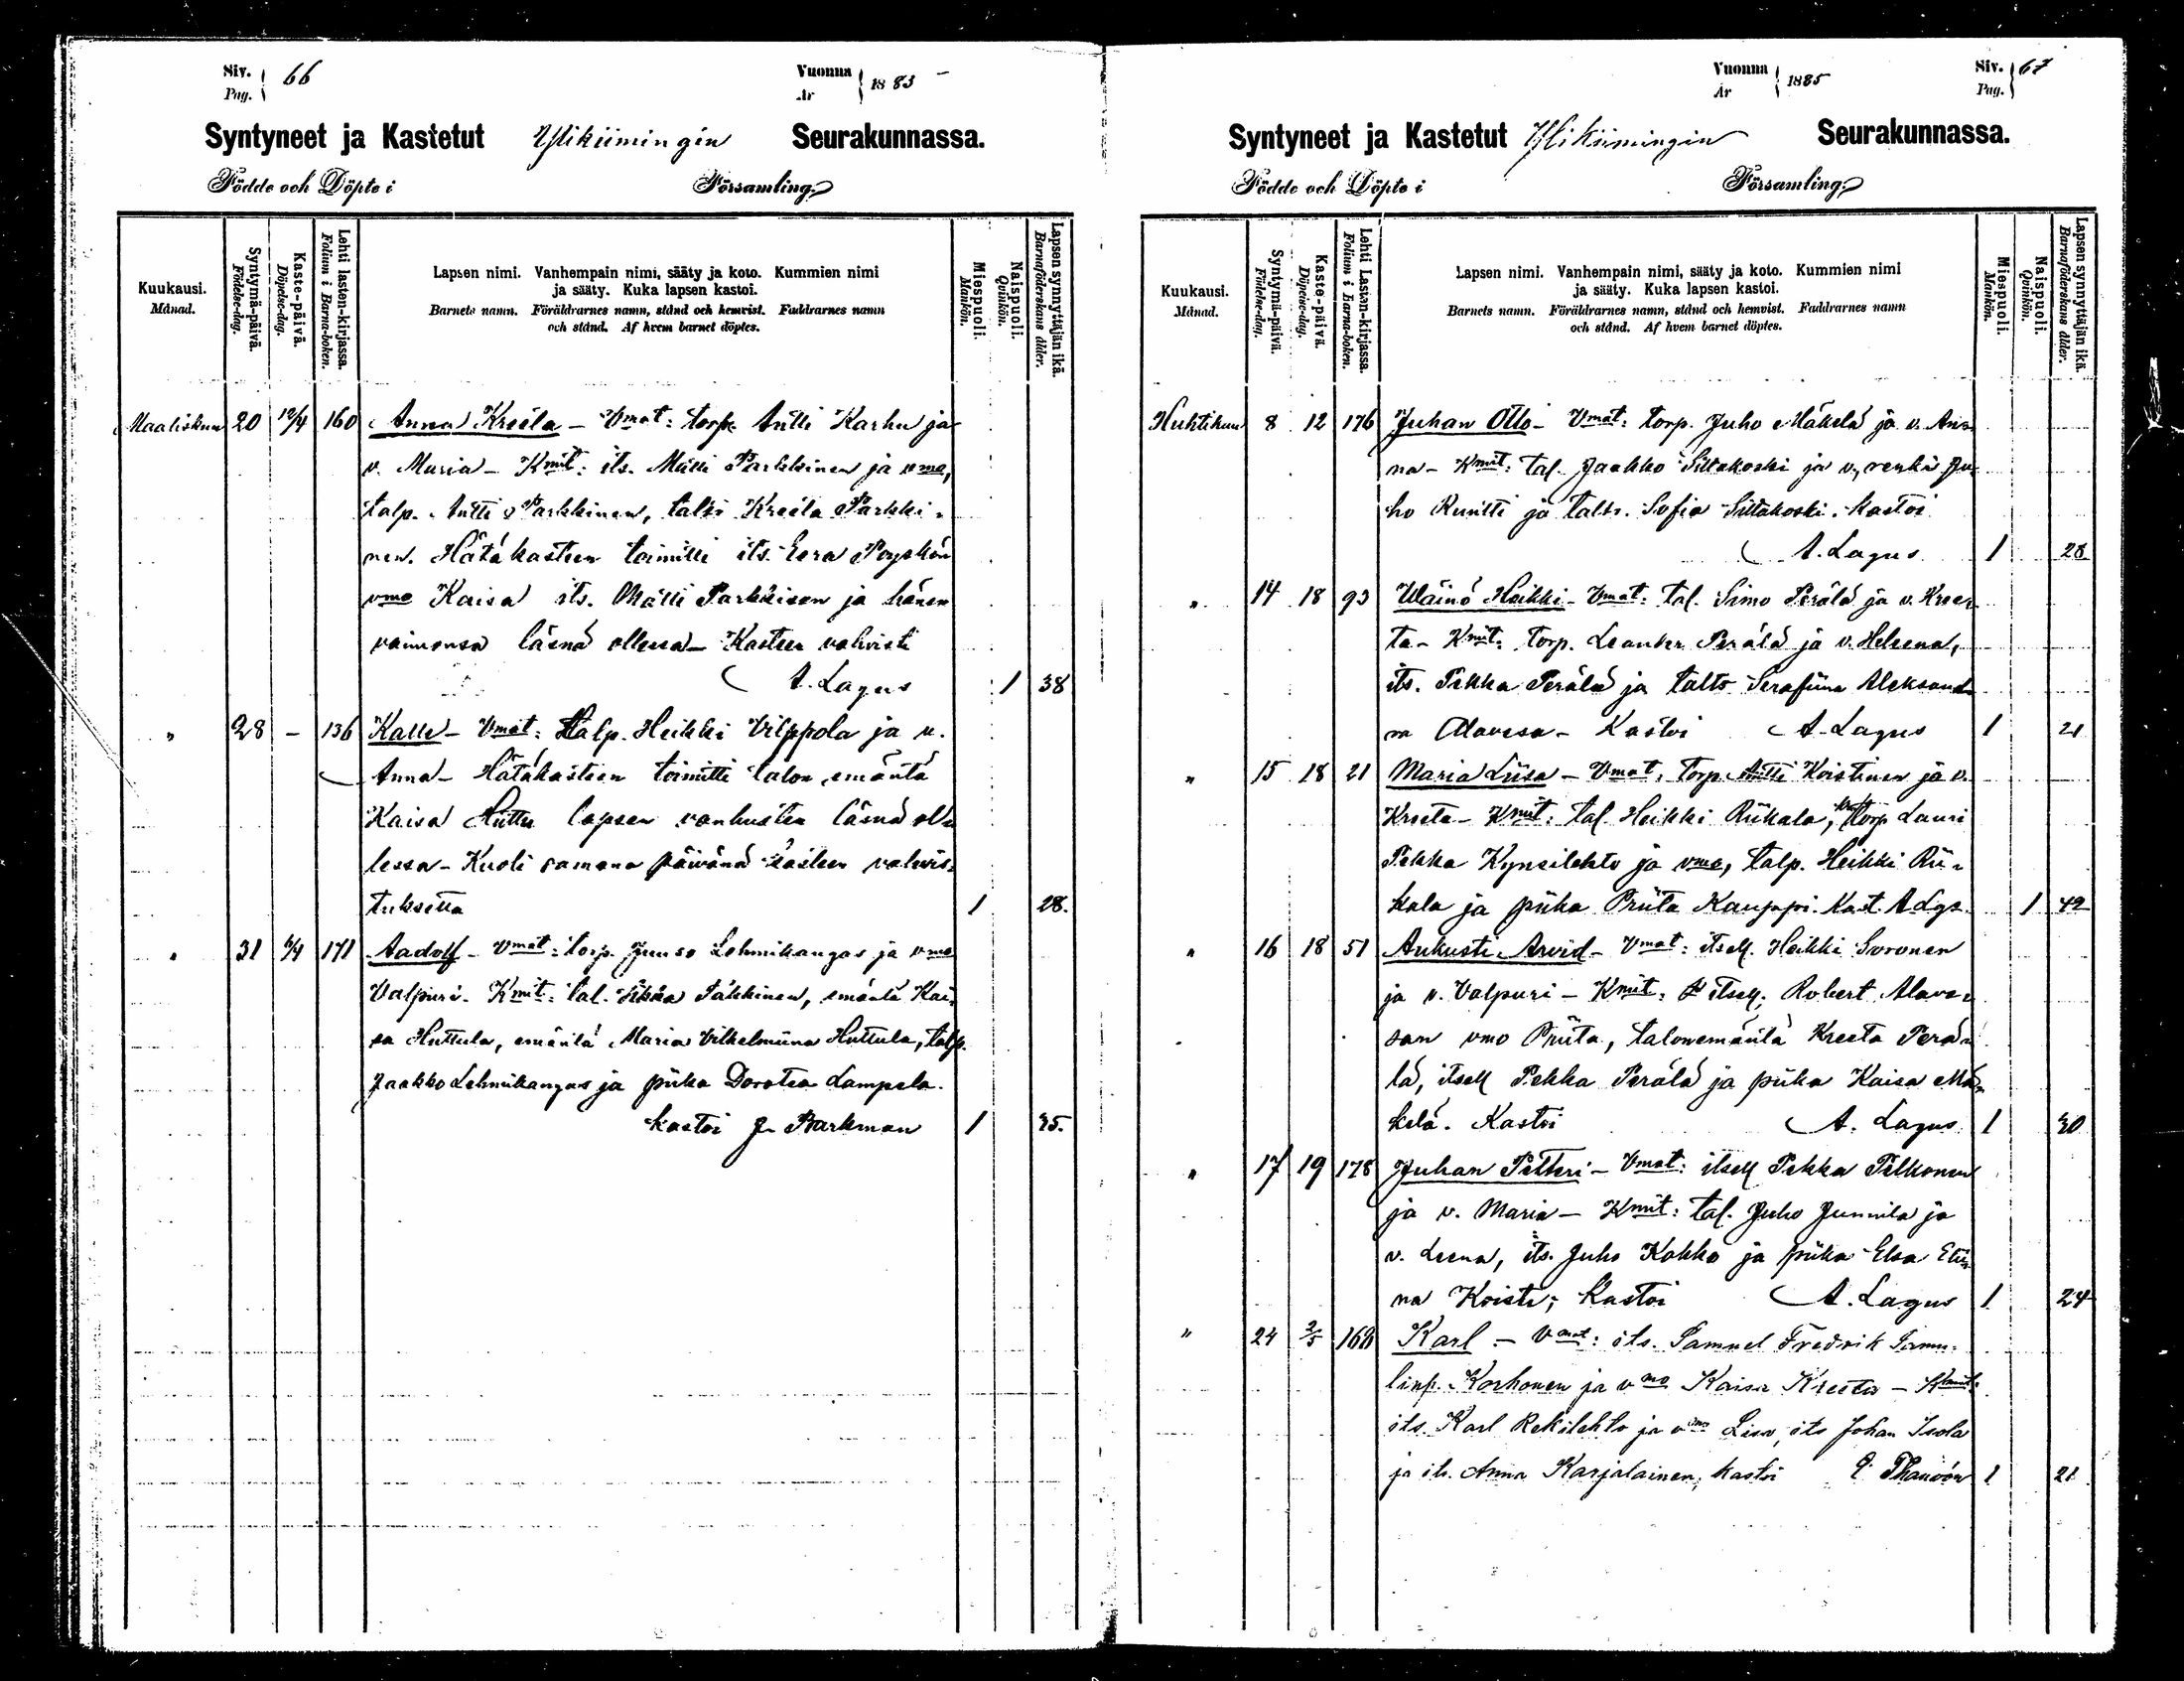 Siv. 66
Pag.
Vuonna 1885
År
Syntyneet ja Kastetut Ylikiimingin Seurakunnassa.
Födde och Döpte i Församling.
Kuukausi. Månad.
Syntymä-päivä. Födelse-dag.
Kaste-päivä. Döpelse-dag.
Lehti lasten-kirjassa. Folium i Barna-boken.
Lapsen nimi. Vanhempain nimi, sääty ja koto. Kummien nimi
ja sääty. Kuka lapsen kastoi.
Barnets namn. Föräldrarnes namn, stånd och hemvist. Faddrarnes namn
och stånd. Af hvem barnet döptes.
Miespuoli. Mankön.
Naispuoli. Qvinkön.
Lapsen synnyttäjän ikä. Barnaföderskans ålder.
Maaliskuu 20 12/4 160 Anna Kreeta - Vmat: torp. Antti Karhu ja
v. Maria - Kmit: its. Matti Parkkinen ja vmo,
talp. Antti Parkkinen, taltr Kreeta Parkki-
nen. Hätäkasteen toimitti its. Esra
vmo Kaisa its. Matti Parkkisen ja hänen
vaimonsa läsnä ollessa - Kasteen vahvisti
A. Lagus 1 38
" 28 - 136 Kalle - Vmat: talp. Heikki Vilppola ja v.
Anna - Hätäkasteen toimitti talon emäntä
Kaisa Huttu lapsen vanhusten läsnä ol-
lessa - Kuoli samana päivänä kasteen vahvis-
tuksetta 1 28.
" 31 6/4 171 Aadolf - Vmat: torp. Juuso Lehmikangas ja vmo
Valpuri. Kmit: tal. Pekka Päkkinen, emäntä Kai-
sa Huttula, emäntä Maria Vilhelmiina Huttula, talp.
Jaakko Lehmikangas ja piika Dorotea Lampela.
kastoi J. Barkman 1 35.
Vuonna 1885
År
Siv. 67
Pag.
Syntyneet ja Kastetut Ylikiimingin Seurakunnassa.
Födde och Döpte i Församling.
Kuukausi. Månad.
Syntymä-päivä. Födelse-dag.
Kaste-päivä. Döpelse-dag.
Lehti Lastan-kirjassa. Folium i Barna-boken.
Lapsen nimi. Vanhempain nimi, sääty ja koto. Kummien nimi
ja sääty. Kuka lapsen kastoi.
Barnets namn. Föräldrarnes namn, stånd och hemvist. Faddrarnes namn
och stånd. Af hvem barnet döptes.
Miespuoli. Mankön.
Naispuoli. Qvinkön.
Lapsen synnyttäjän ikä. Barnaföderskans ålder.
Huhtikuu 8 12 176 Juhan Otto - Vmat: torp. Juho Mäkelä ja v. An-
na - Kmit: tal. Jaakko Siltakoski ja v., renki Ju-
ho Ruitti ja taltr. Sofia Siltakoski. Kastoi
A. Lagus 1 28
" 14 18 93 Wäinö Heikki - Vmat: tal. Simo Perälä ja v. Kree-
ta - Kmit: torp. Leander Perälä ja v. Helena,
its. Pekka Perälä ja taltr Serafiina Aleksand-
ra Alavesa - Kastoi A. Lagus 1 21
" 15 18 21 Maria Liisa - Vmat: torp. Antti Koistinen ja v.
Kreeta - Kmit: tal. Heikki Riikala, torp Lauri
Pekka Kynsilehto ja vmo, talp. Heikki Rii-
kala ja piika Priita Kauppi. Kast. A Lgs. 1 42
" 16 18 51 Aukusti Arvid - Vmat: itsell. Heikki Soronen
ja v. Valpuri - Kmit: itsell. Robert Alave-
san vmo Priita, talonemäntä Kreeta Perä-
lä, itsell Pekka Perälä ja piika Kaisa Mä-
kelä. Kastoi A. Lagus 1 30
" 17 19 178 Juhan Petteri - Vmat: itsell Pekka Pelkonen
ja v. Maria - Kmit: tal. Juho Junnila ja
v. Leena, its. Juho Kokko ja piika Elsa Etii-
na Koisti; Kastoi A. Lagus 1 24
" 24 2/5 168 Karl - Vmat: its. Samuel Fredrik Samu-
linp. Korhonen ja vmo Kaisa Kreeta - Kmit:
its. Karl Rekilehto ja vmo Lisa, its Johan Isola
ja its. Anna Karjalainen; kastoi 1 21